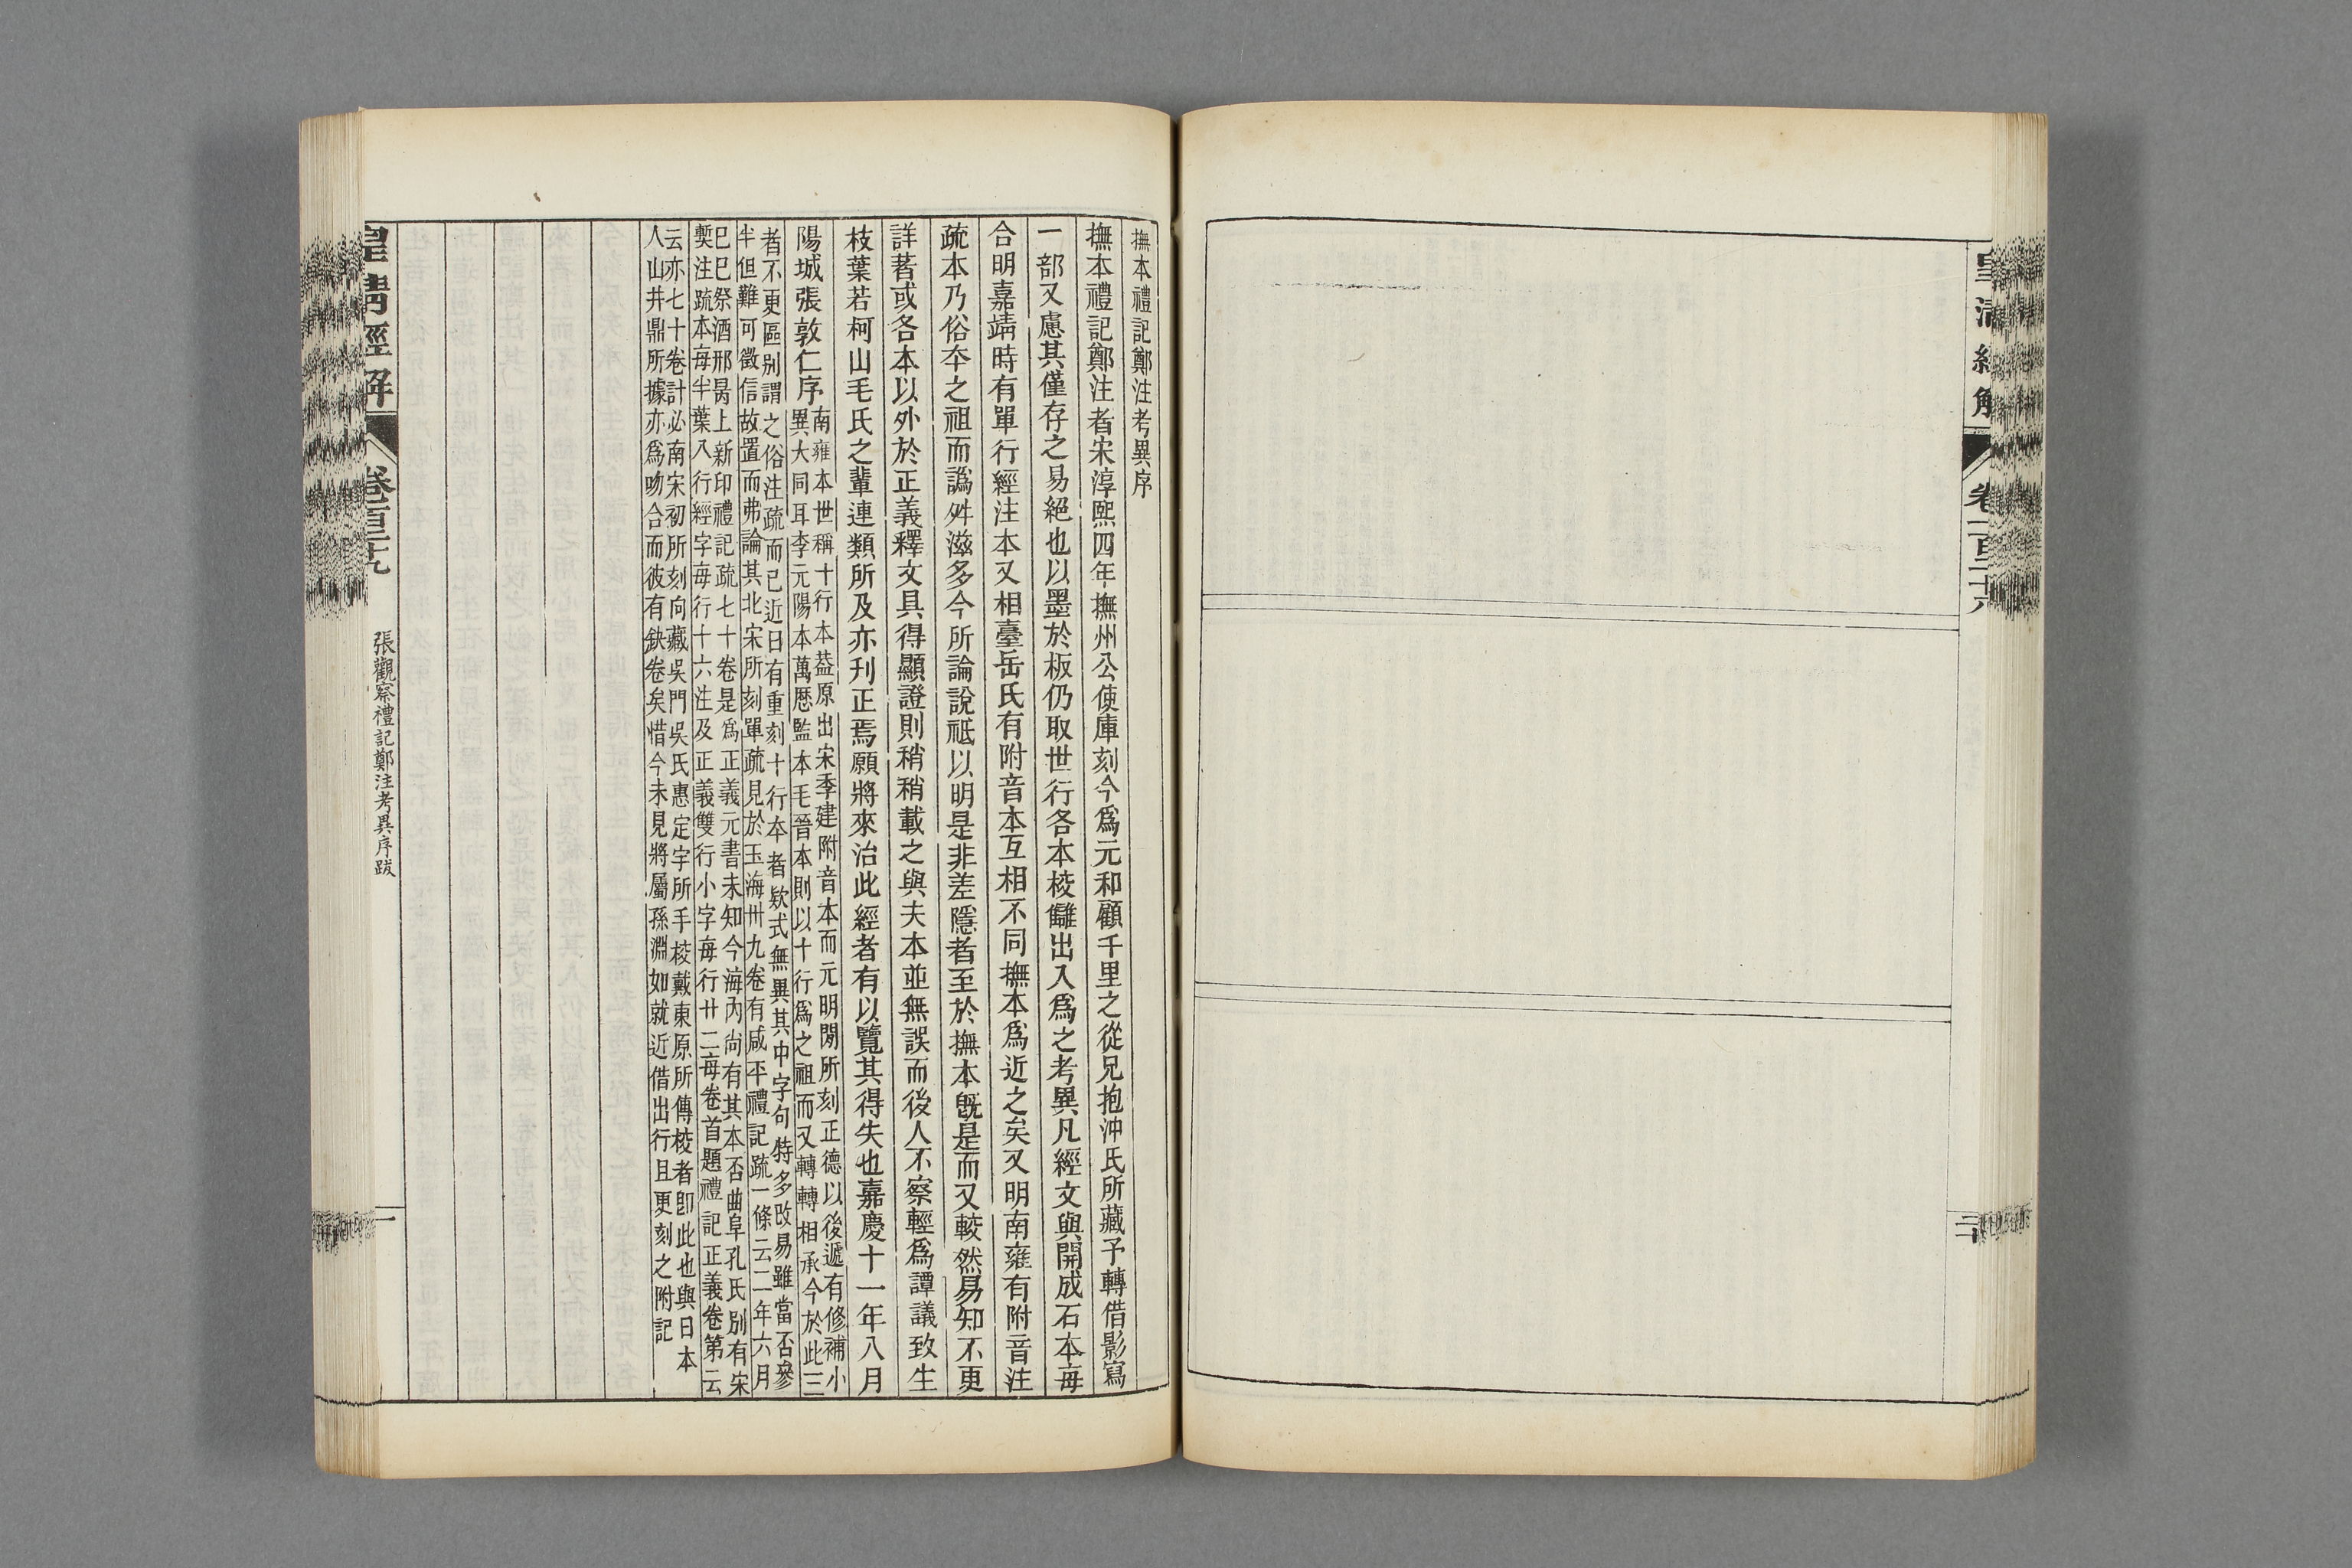 皇清經解
卷一百二十六
二十
撫本禮記鄭注考異序
撫本禮記鄭注者宋淳熙四年撫州公使庫刻今爲元和顧千里之從兄抱沖氏所藏予轉借影寫
一部又慮其僅存之易絕也以墨於板仍取世行各本校讎出入爲之考異凡經文與開成石本每
合明嘉靖時有單行經注本又相臺岳氏有附音本互相不同撫本爲近之矣又明南雍有附音注
疏本乃俗夲之祖而譌舛滋多今所論說祗以明是非差隱者至於撫本旣是而又較然易知不更
詳著或各本以外於正義釋文具得顯證則稍稍載之與夫本並無誤而後人不察輕爲譚議致生
枝葉若柯山毛氏之輩連類所及亦刊正焉願將來治此經者有以覽其得失也嘉慶十一年八月
陽城張敦仁序
南雍本世稱十行本葢原出宋季建附音本而元明閒所刻正德以後遞有修補小
異大同耳李元陽本萬厯監本毛晉本則以十行爲之祖而又轉轉相承今於此三
者不更區別謂之俗注疏而已近日有重刻十行本者欵式無異其中字句特多改易雖當否參
半但難可徵信故置而弗論其北宋所刻單疏見於玉海卅九卷有咸平禮記疏一條云二年六月
己巳祭酒邢昺上新印禮記疏七十卷是爲正義元書未知今海內尙有其本否曲阜孔氏別有宋
槧注疏本每半葉八行經字每行十六注及正義雙行小字每行廿二每卷首題禮記正義卷第云
云亦七十卷計必南宋初所刻向藏吳門吳氏惠定宇所手校戴東原所傳校者卽此也與日本
人山井鼎所據亦爲吻合而彼有鈌卷矣惜今未見將屬孫淵如就近借出行且更刻之附記
皇清經解
張觀察禮記鄭注考異序跋
一